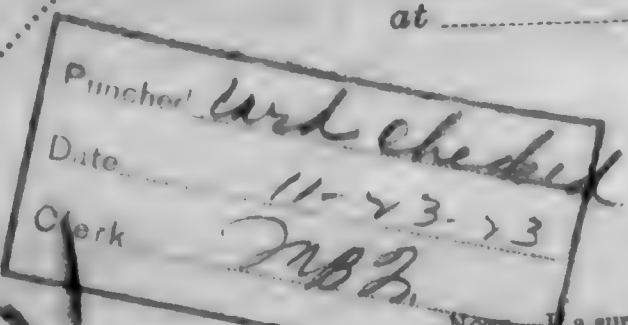 at
Punched card checked
Date 11-23-23
Clerk